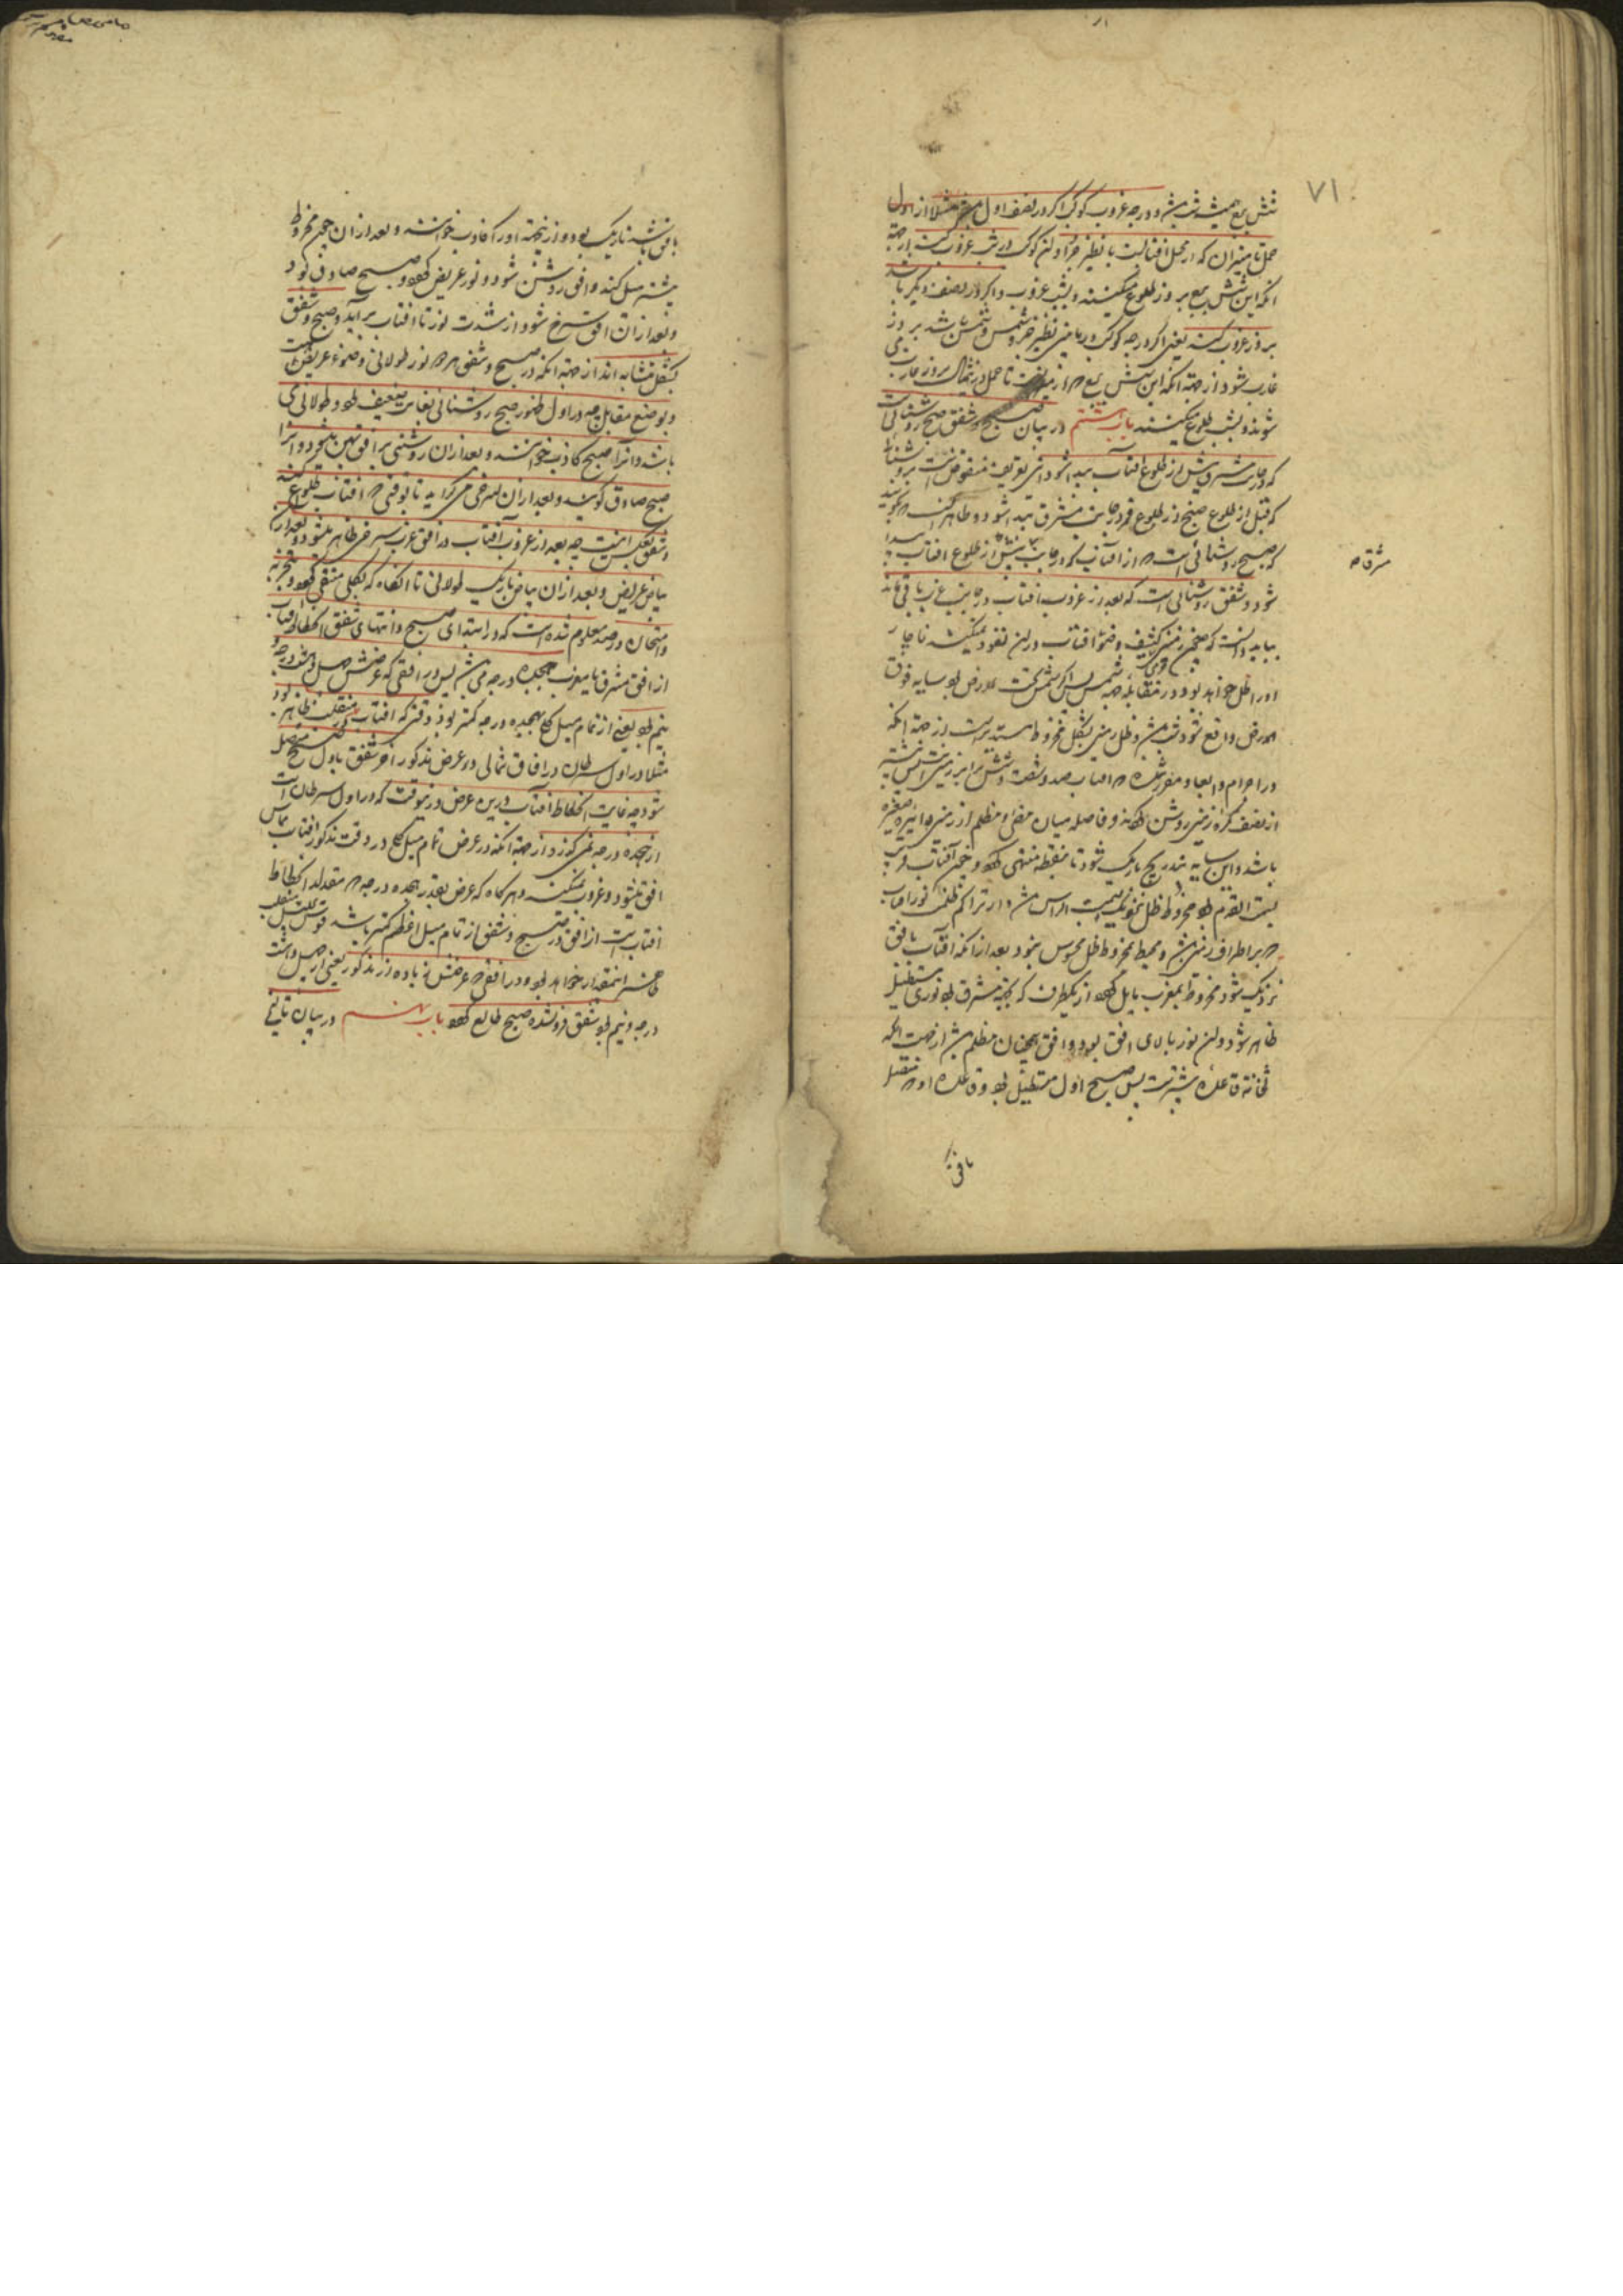 ۷۱
شش برج همیشه شب باشد و درجه غروب کوکب اگر در نصف اول باشد مثلا از اول
حمل تا میزان که از محل آفتابست تا نظیر جزؤ او آن کوکب در شب غروب کند از جهة
آنکه این شش برج بروز طلوع میکنند و بشب غروب و اگر در نصف دیگر باشد
بروز غروب کند یعنی اگر درجه کوکب در مابین نظیر جزو شمس و شمس باشد بروز
غارب شود از جهة آنکه این شش برج از میزانست تا حمل در مثال بروز غارب می
شوند و بشب طلوع میکنند باب هشتم در بیان صبح و شفق صبح روشنائی است
که در جانب شرق پیش از طلوع آفتاب پیدا شود این تعریف منقوض است بروشنائی
که قبل از طلوع صبح از طلوع قمر در جانب مشرق پیدا شود و ظاهر آنست که گویند
که صبح روشنائی است از آفتاب که در جانب مشرق پیش از طلوع آفتاب پیدا
شرقا
شود و شفق روشنائی است که بعد از غروب آفتاب در جانب غرب باقی ماند
بباید دانست که جرم زمین کثیف و ضوء آفتاب در آن نفوذ نمیکند ناچار
او را ظل خواهد بود در مقابله جهة شمس پس اگر شمس تحت الارض بود سایه فوق
الارض واقع شود شب باشد و ظل زمین بشکل مخروط مستدیر است از جهة آنکه
در اجرام و ابعاد مقرر شده آفتاب صد و شصت و شش برابر زمین است پس بیشتر
از نصف کره زمین روشن کند و فاصله میان مضی و مظلم از زمین دائره صغیره
باشد و این سایه بتدریج باریک شود تا بنقطه منتهی گردد و چون آفتاب قریب
بسمت القدم بود مخروط ظل نزدیک بسمت الراس باشد و از تراکم ظلمت نور آفتاب
بر اطراف زمین باشد و محیط بمخروط ظل محسوس نبود بعد از آنکه آفتاب بافق
نزدیک شود مخروط بمغرب مایل گردد از یکطرف که بجهة مشرق بود نوری مستطیل
ظاهر شود و آن نور بالای افق بود و افق همچنان مظلم باشد از جهت آنکه
ثخانة قاعده بیشترست پس صبح اول مستطیل بود و قاعده او متصل
بافق
بافق باشد تاریک بود و ازینجهة او را کاذب خوانند و بعد از آن چون مخروط
بیشتر میل کند و افق روشن شود و نور عریض گردد صبح صادق بود
و بعد از آن افق سرخ شود از شدت نور تا آفتاب برآید و صبح و شفق
بشکل متشابه‌اند از جهة آنکه در صبح و شفق هر دو نور طولانی و ضوء عریض است
و بوضع مقابل چه در اول ظهور صبح روشنائی بغایت ضعیف بود و طولانی می
باشد و آنرا صبح کاذب خوانند و بعد از آن روشنی بر افق پهن بشود و آنرا
صبح صادق گویند و بعد از آن بسرخی می گراید تا بوقتی آفتاب طلوع کند
و شفق بعکس اینست چه بعد از غروب آفتاب در افق غرب سرخی ظاهر بشود و بعد از آن
بیاض عریض و بعد از آن بیاض باریک طولانی تا آنگاه که بکلی منتفی گردد و بتجربه
و امتحان و رصد معلوم شده است که در ابتدای صبح و انتهای شفق انحطاط آفتاب
از افق مشرق تا مغرب هجده درجه می باشد پس در افقی که عرضش چهل و هشت درجه و
نیم بود یعنی از تمام میل کلی بهجده درجه کمتر بود وقتی که آفتاب بمنقلب ظاهر بود
مثلا در اول سرطان در آفاق شمالی در عرض مذکور آخر شفق باول صبح متصل
شود چه غایت انحطاط آفتاب درین عرض در اینوقت که در اول سرطان است
از هجده درجه نمی گذرد از جهة آنکه در عرض تمام میل کلی در وقت مذکور آفتاب مماس
افق میشود و غروب نمیکند و هرگاه که عرض بقدر هجده درجه مقدار انحطاط
آفتابست از افق در صبح و شفق از تمام میل اعظم کمتر باشد قوس انحطاط منقلب
همین مقدار خواهد بود و در افقی عرضش زیاده از مذکور یعنی از چهل و هشت
درجه و نیم بود شفق فرو نشده صبح طالع گردد باب نهم در بیان تاریخ